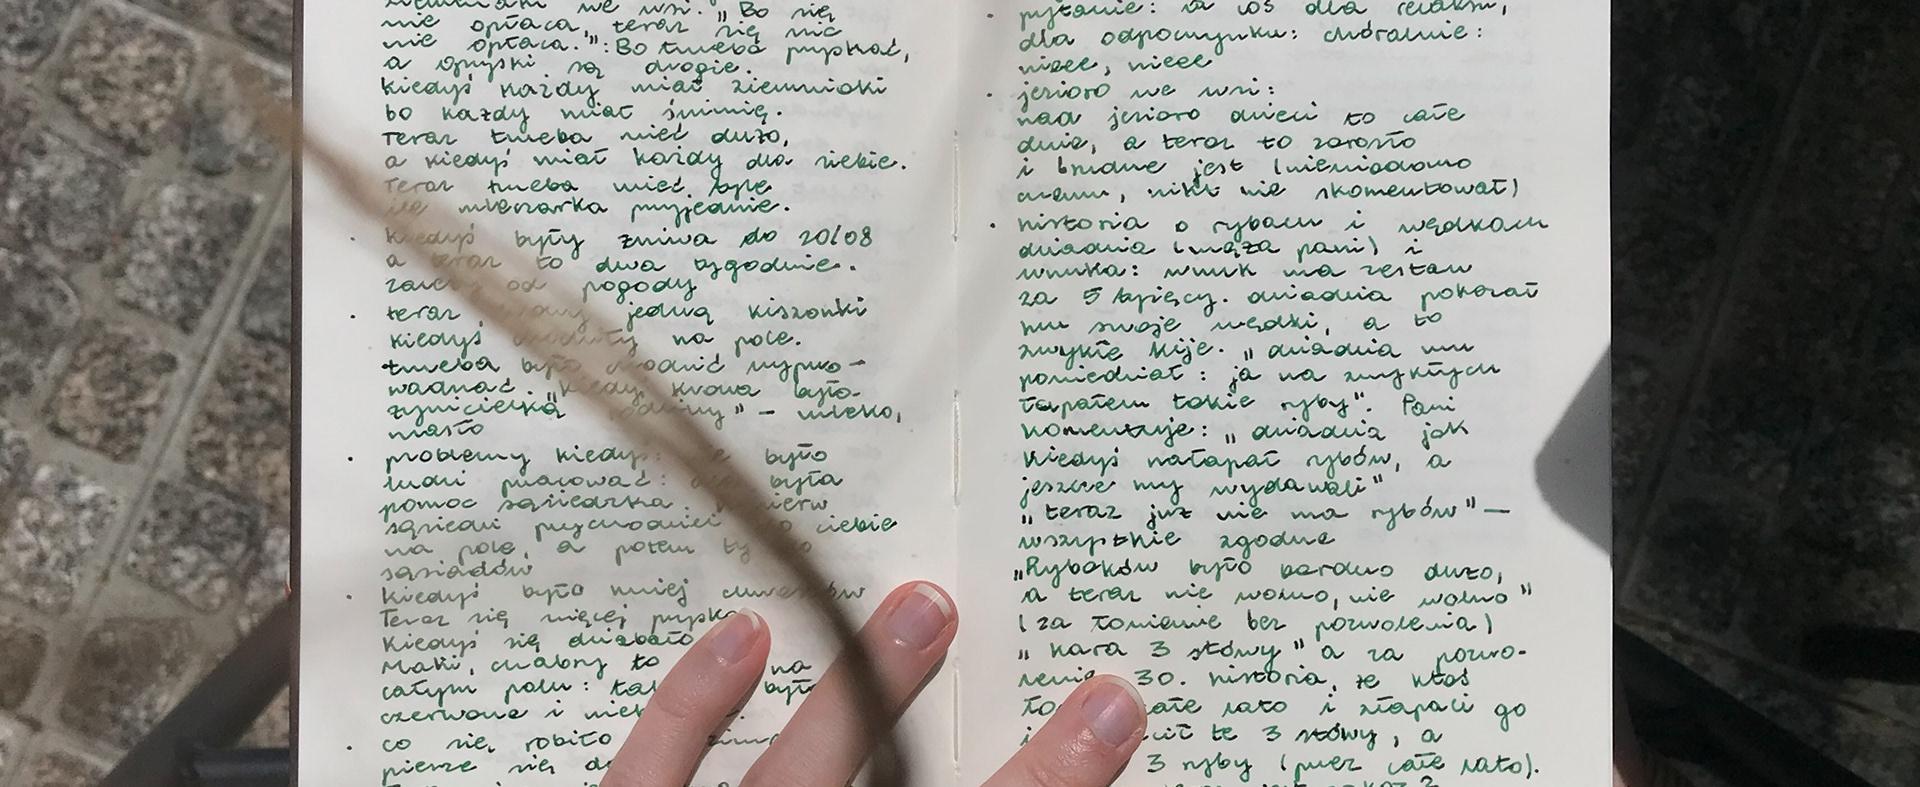 nie opłaca, teraz się nic
nie opłaca.": Bo trzeba pryskać,
a opryski są drogie.
kiedyś każdy miał ziemniaki
bo każdy miał świnię.
Teraz trzeba mieć dużo,
a kiedyś miał każdy dla siebie.
Teraz trzeba mieć, żeby
mleczarka przyjednie.
· kiedyś były żniwa do 20/08
a teraz to dwa tygodnie.
od pogody
· teraz jedzą kiszonki
kiedyś na pole.
trzeba było wypro-
wadzać. "Kiedyś krowa była
żywicielką rodziny" – mleko,
masło
· problemy kiedyś: było
ludzi pracować: była
pomoc sąsiedzka.
sąsiedzi przychodzili ciebie
na pole, a potem ty
sąsiadów
· kiedyś było mniej chwastów
Teraz się więcej pryska
Kiedyś się dziabało
Maki, chabry to na
całym polu: było
czerwone i
· co się robiło
pierze się
· pytanie: a coś dla relaksu,
dla odpoczynku: chóralnie:
nieee, nieee
· jezioro we wsi:
nad jezioro dzieci to całe
dnie, a teraz to zarosło
i brudne jest (niewiadomo
czemu, nikt nie skomentował)
· historia o rybach i wędkach
dziadzia (męża pani) i
wnuka: wnuk ma zestaw
za 5 tysięcy. dziadzia pokazał
mu swoje wędki, a to
zwykłe kije. „dziadzia mu
powiedział: ja na zwykłych
łapałem takie ryby". Pani
komentuje: „dziadzia jak
kiedyś nałapał rybów, a
jeszcze my wydawali"
„teraz już nie ma rybów" –
wszystkie zgodne
„Rybaków było bardzo dużo,
a teraz nie wolno, nie wolno"
(za łowienie bez pozwolenia)
„kara 3 stówy" a za pozwo-
lenie 30. historia, że ktoś
całe lato i złapali go
i te 3 stówy, a
3 ryby (przez całe lato).